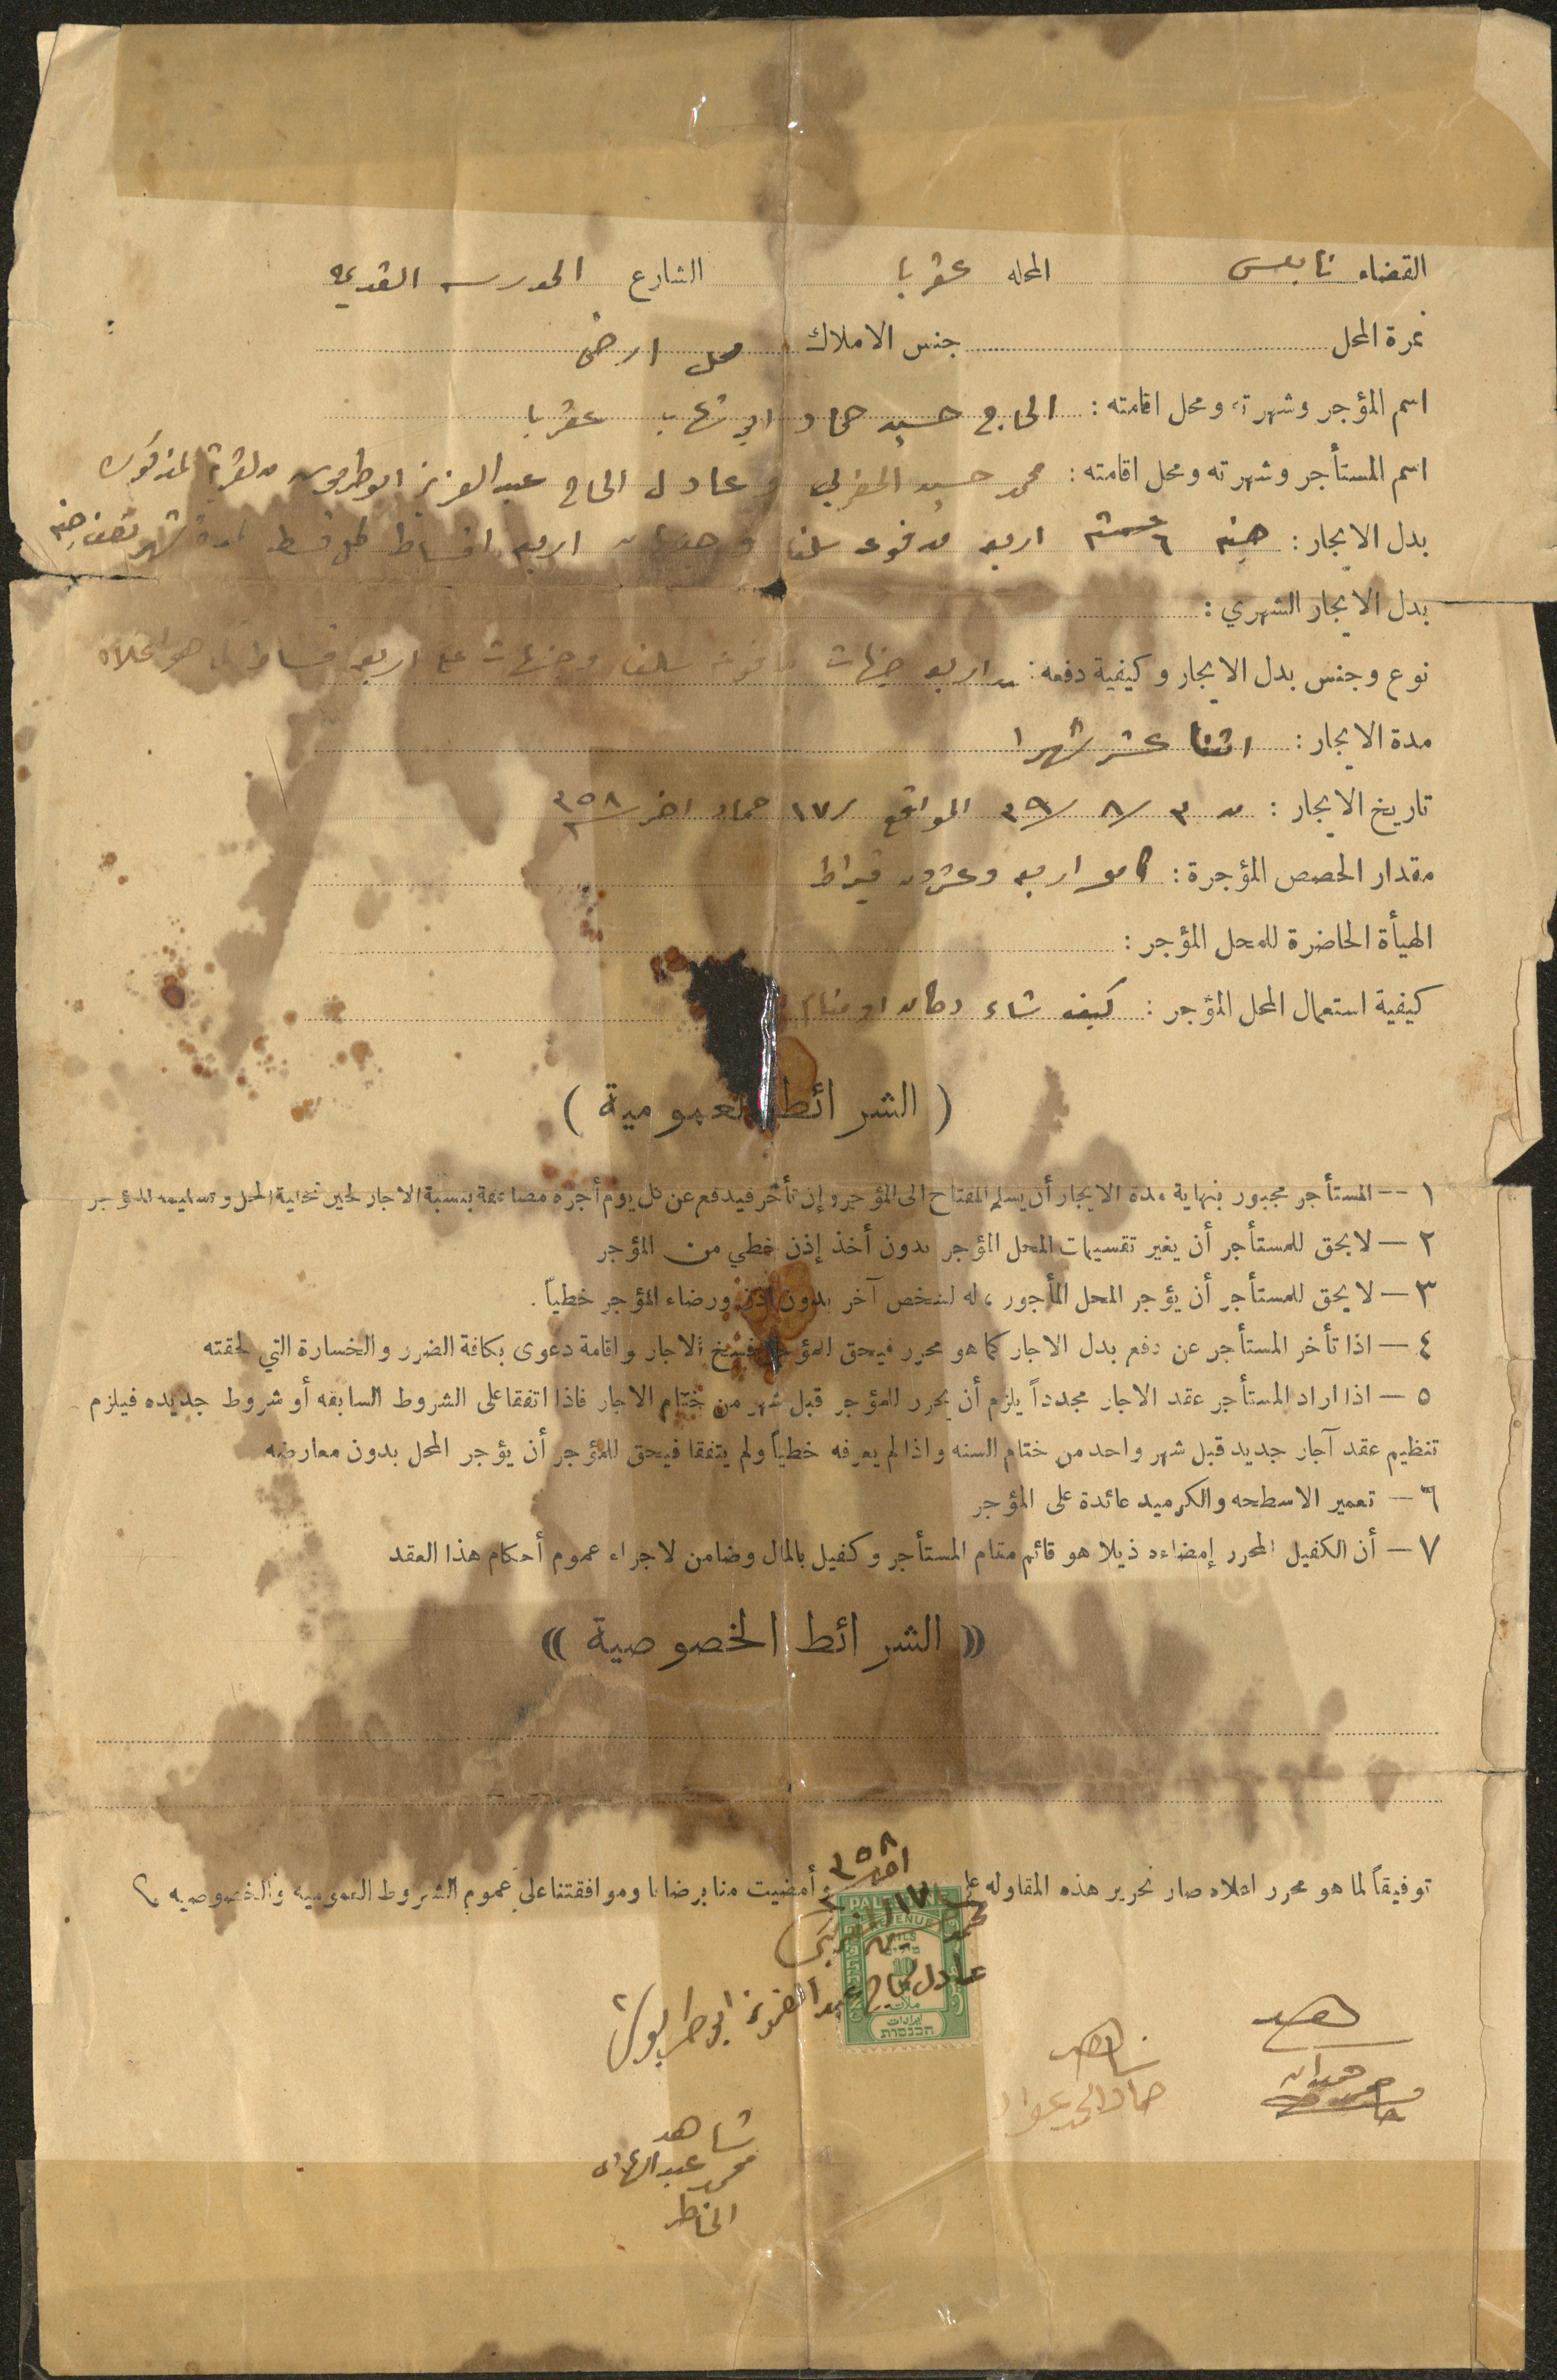 القضاء نابلس المحله عقربا الشارع المدرسه القديمه
نمرة المحل جنس الاملاك محل ارضي
اسم المؤجر وشهرته ومحل اقامته : الحاج حسين حماد ابو شهاب عقربا
اسم المستأجر وشهرته ومحل اقامته : محمد حسين المغربي وعادل الحاج عبد العزيز ابو طربوش من القرية المذكوره
بدل الايجار : جنيه ٦ ستة اربعه مدفوعه سلفا وجنيهان اربعه اقساط كل قسط لمدة شهر نصف جنيه
بدل الايجار الشهري :
نوع وجنس بدل الايجار وكيفية دفعه : اربع جنيهات مدفوعه سلفا وجنيهات على اربعه اقساط كما هو اعلاه
مدة الايجار : اثنا عشر شهرا
تاريخ الايجار : من ٣ / ٨ / ٣٩ الموافق / ١٧ جماد اخر ٣٥٨
مقدار الحصص المؤجرة : كامل اربعه وعشرون قيراط
الهيأة الحاضرة للمحل المؤجر :
كيفية استعمال المحل المؤجر : كيف شاء دكان او منام
( الشرائط العمومية )
١ — المستأجر مجبور بنهاية مدة الايجار أن يسلم المفتاح الى المؤجر وإن تأخر فيدفع عن كل يوم أجرة مضاعفة بنسبة الاجار لحين تخلية المحل وتسليمه للمؤجر
٢ — لا يحق للمستأجر أن يغير تقسيمات المحل المؤجر بدون أخذ إذن خطي من المؤجر
٣ — لا يحق للمستأجر أن يؤجر المحل المأجور ، له لشخص آخر بدون إذن ورضاء المؤجر خطياً .
٤ — اذا تأخر المستأجر عن دفع بدل الاجار كما هو محرر فيحق للمؤجر فسخ الاجار واقامة دعوى بكافة الضرر والخسارة التي لحقته
٥ — اذا اراد المستأجر عقد الاجار مجدداً يلزم أن يحرر للمؤجر قبل شهر من ختام الاجار فاذا اتفقا على الشروط السابقه أو شروط جديده فيلزم
تنظيم عقد آجار جديد قبل شهر واحد من ختام السنه واذا لم يعرفه خطياً ولم يتفقا فيحق للمؤجر أن يؤجر المحل بدون معارضه
٦ — تعمير الاسطحه والكرميد عائدة على المؤجر
٧ — أن الكفيل المحرر إمضاءه ذيلا هو قائم مقام المستأجر وكفيل بالمال وضامن لاجراء عموم أحكام هذا العقد
(( الشرائط الخصوصية ))
توفيقاً لما هو محرر اعلاه صار تحرير هذه المقاوله أمضيت منا برضانا وموافقتنا على عموم الشروط العموميه والخصوصيه
٣٥٨
PALESTINE
REVENUE
MILS
10
ملات
ايرادات
הכנסות
عادل الحاج عبد العزيز ابو طربوش
شاهد
حماد الحمد عواد
شاهد
محمد عبد الهادي
الخاطر